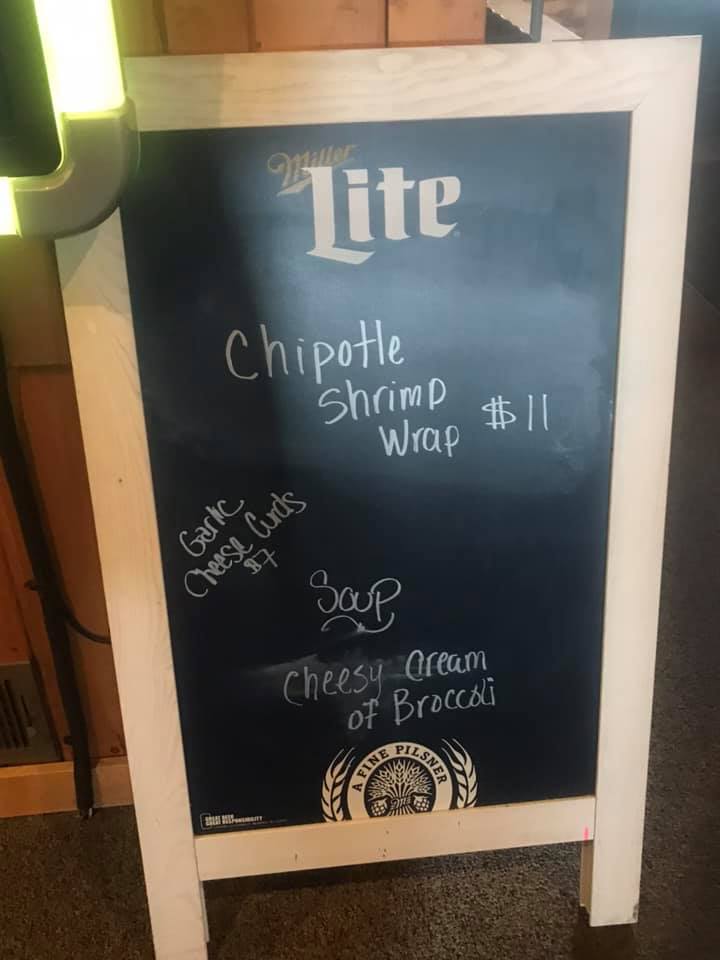 Miller
Lite
Chipotle
Shrimp
Wrap $11
Garlic
Cheese Curds
$7
Soup
Cheesy Cream
of Broccoli
A FINE PILSNER
GREAT BEER
GREAT RESPONSIBILITY